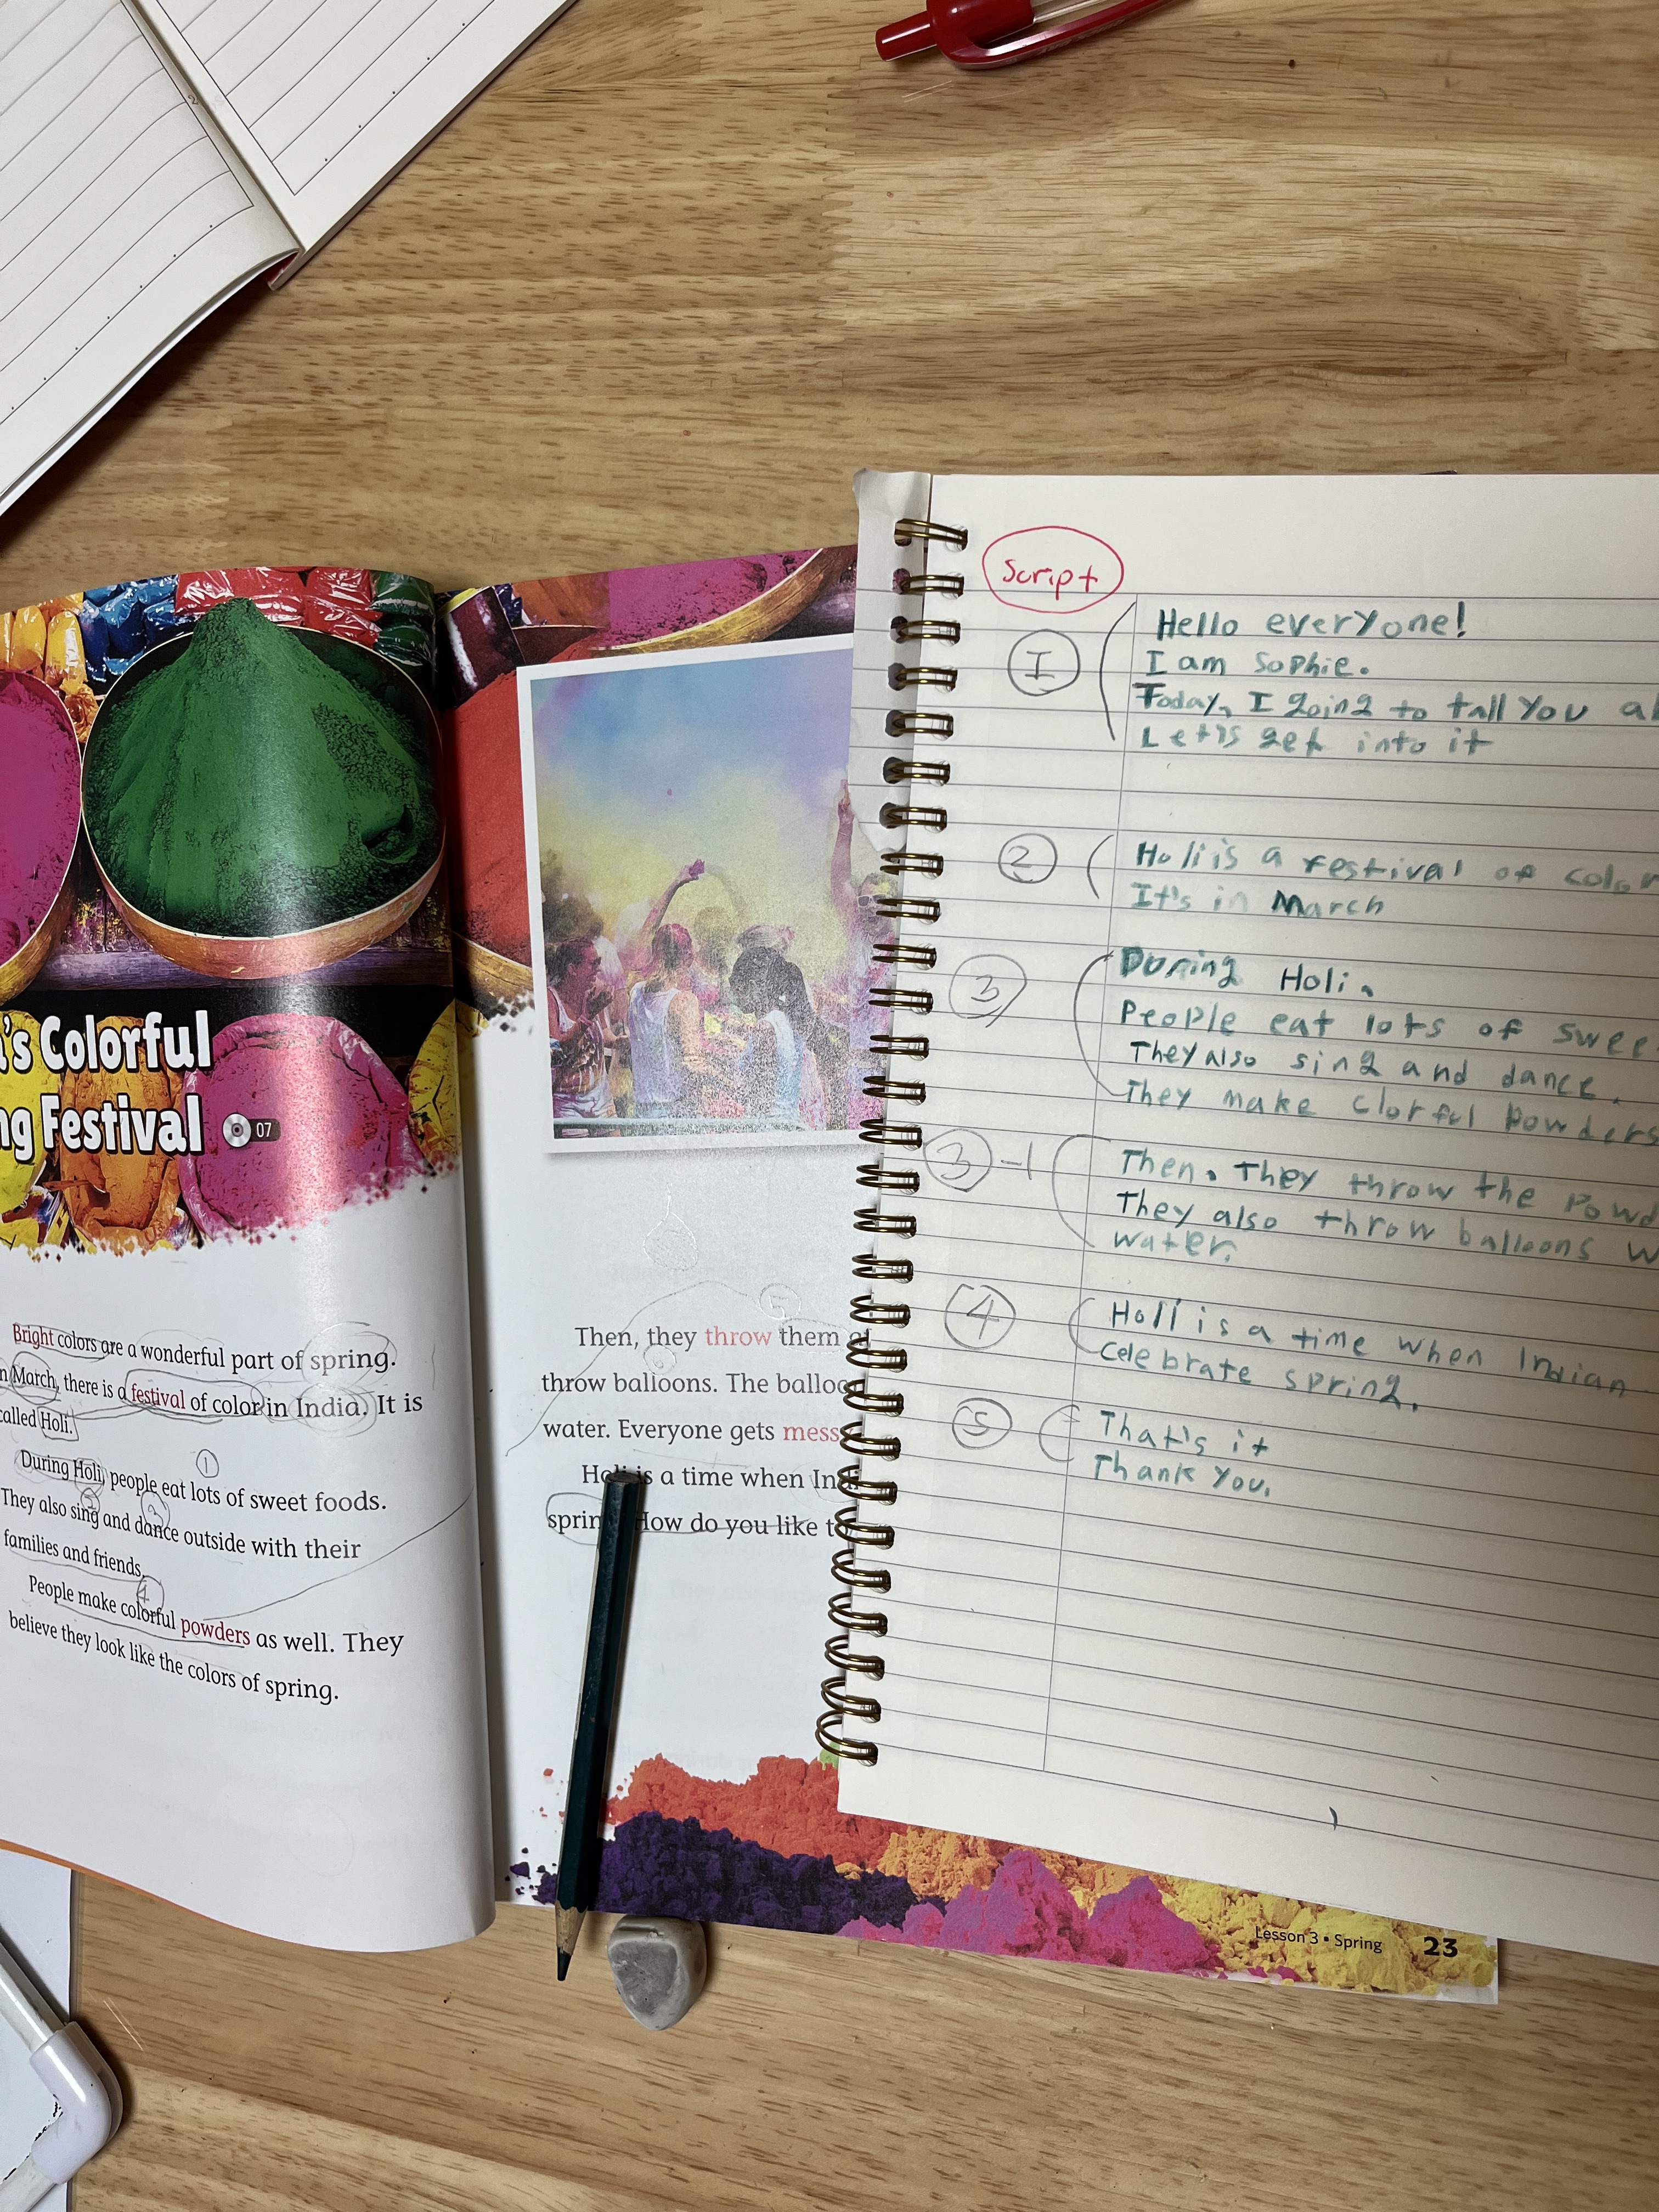 's Colorful
Festival
07
Bright colors are a wonderful part of spring.
March, there is a festival of color in India. It is
called Holi.
1
During Holi, people eat lots of sweet foods.
2
3
They also sing and dance outside with their
families and friends.
4
People make colorful powders as well. They
believe they look like the colors of spring.
5
Then, they throw them
6
throw balloons. The
water. Everyone gets
Holi is a time when
How do you like
Lesson 3 • Spring 23
Script
1
Hello everyone!
I am Sophie.
Today, I going to tall you
Let's get into it
2
Holi is a festival of
It's in March
3
During Holi,
People eat lots of
They also sing and dance.
They make clorful Powders
3-1
Then, They throw the
They also throw balloons
water.
4
Holi is a time when Indian
celebrate spring.
5
That's it
Thank you.